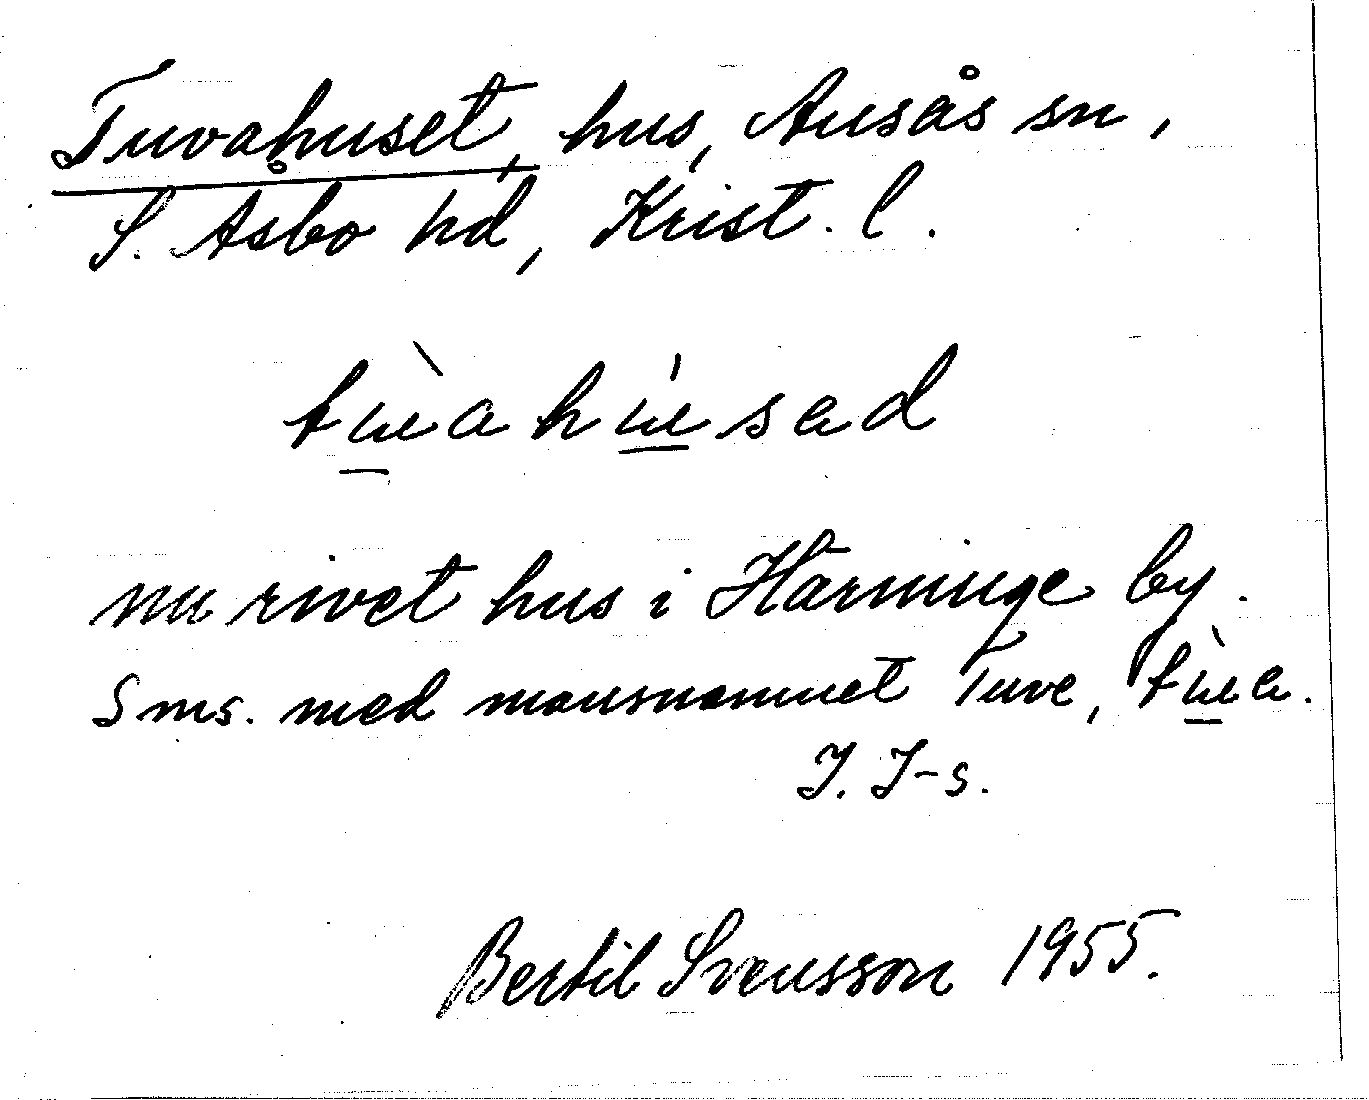 Tuvahuset, hus, Ausås sn,
S. Åsbo hd, Krist. l.
nu rivet hus i Härninge by.
Sms. med mansnamnet Tuve,
I. I-s.
Bertil Svensson 1955.